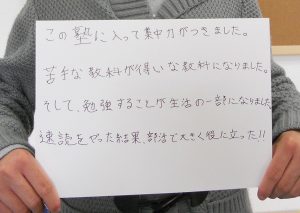 この塾に入って集中力がつきました。
苦手な教科が得いな教科になりました。
そして、勉強することが生活の一部になりました
速読をやった結果、部活で大きく役に立った!!